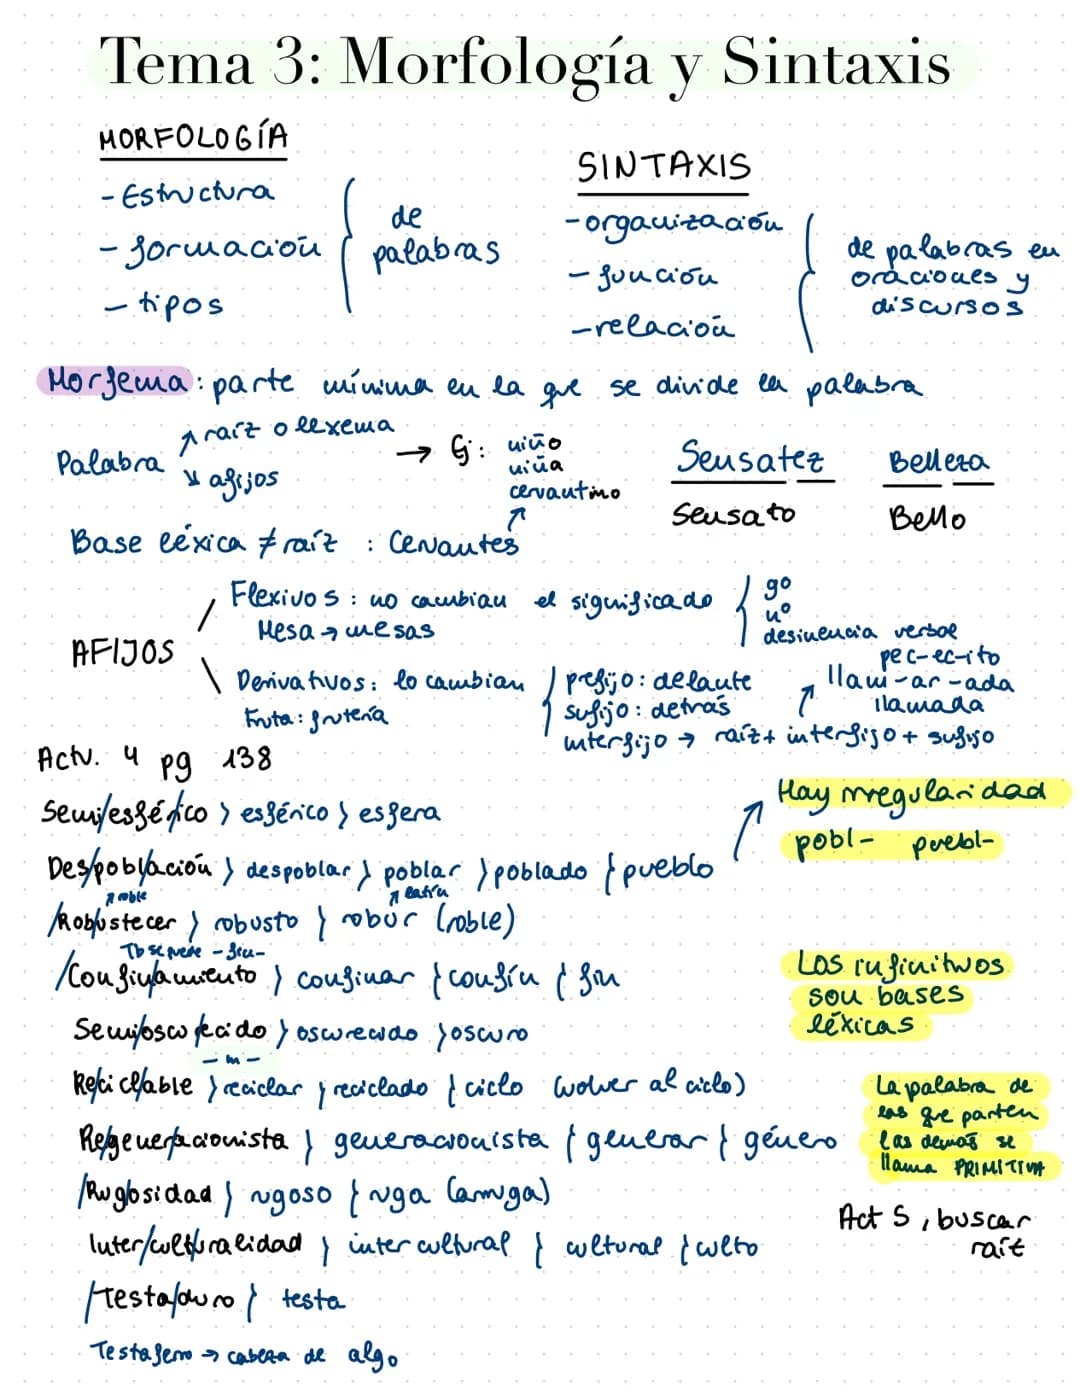 Tema 3: Morfología y Sintaxis
MORFOLOGÍA
- Estructura
- formación
- tipos
de
palabras
SINTAXIS
- organización
- función
- relación
de palabras en
oraciones y
discursos
Morfema: parte mínima en la que se divide la palabra
Palabra
raíz o lexema
afijos
→ Ej: niño
niña
cervantino
Sensatez
Sensato
Belleza
Bello
Base léxica ≠ raíz : Cervantes
AFIJOS
Flexivos: no cambian el significado
Mesa → mesas
gº
nº
desinencia verbal
Derivativos: lo cambian
Fruta: frutería
prefijo: delante
sufijo: detrás
interfijo → raíz + interfijo + sufijo
pec-ec-ito
llam-ar-ada
llamada
Actv. 4 pg 138
Semi/esfér/ico } esférico } esfera
Des/pobl/ación } despoblar } poblar } poblado } pueblo
Hay irregularidad
pobl- puebl-
roble
latín
/Robustecer } robusto } robur (roble)
Tb se puede -fin-
/Confin/amiento } confinar } confín } fin
Los infinitivos
son bases
léxicas
Semi/oscurecido } oscurecido } oscuro
Re/cicl/able } reciclar } reciclado } ciclo (volver al ciclo)
La palabra de
las que parten
las demás se
llama PRIMITIVA
Re/gener/acionista } generacionista } generar } género
/Rug/osidad } rugoso } ruga (arruga)
Act 5, buscar
raíz
Inter/cult/uralidad } intercultural } cultural } culto
/Testa/duro } testa
Testaferro → cabeza de algo